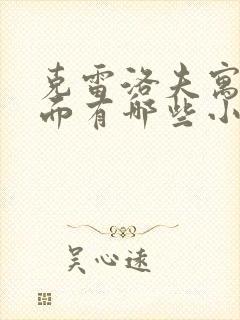 克雷洛夫寓
而有哪些小
吴心远